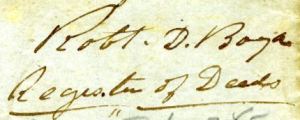 Robt. D. Boya
Register of Deeds